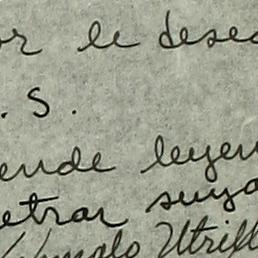 or le desea
. S.
ende leyen
etrar suya
Utrill